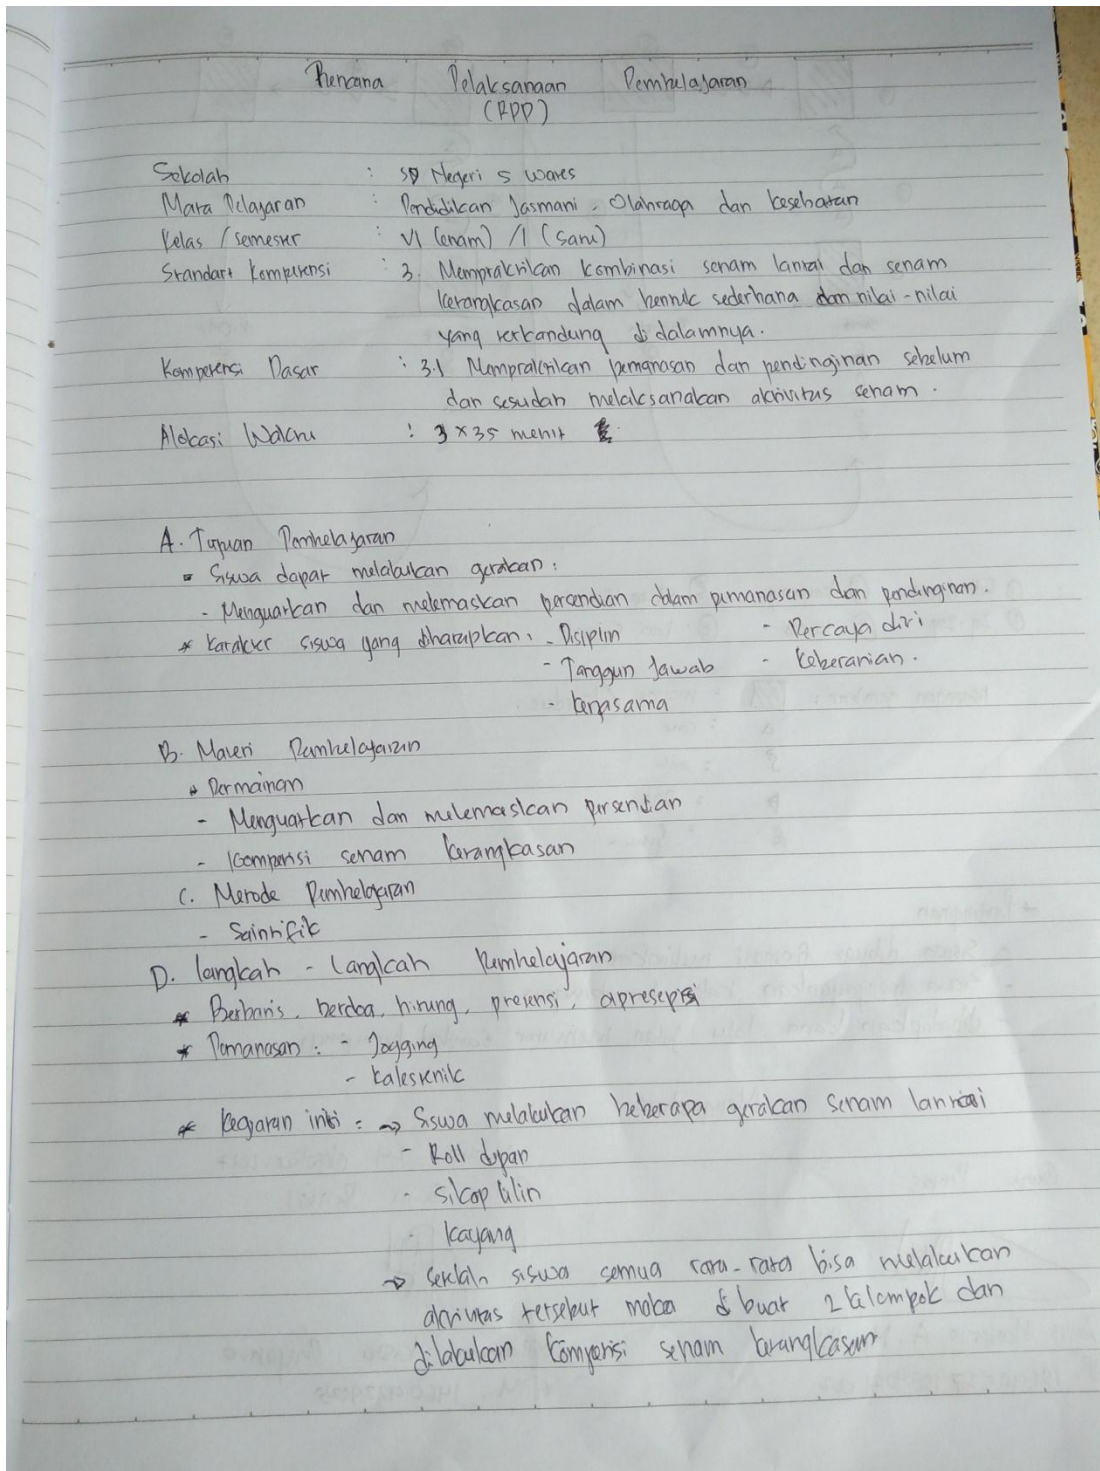 Rencana Pelaksanaan Pembelajaran
(RPP)
Sekolah : SD Negeri 5 Wates
Mata Pelajaran : Pendidikan Jasmani, Olahraga dan kesehatan
Kelas / Semester : VI (enam) / 1 (Satu)
Standart Kompetensi : 3. Mempraktikan kombinasi senam lantai dan senam
ketangkasan dalam bentuk sederhana dan nilai-nilai
yang terkandung di dalamnya.
Kompetensi Dasar : 3.1 Mempraktikan pemanasan dan pendinginan sebelum
dan sesudah melaksanakan aktivitas senam.
Alokasi Waktu : 3 x 35 menit
A. Tujuan Pembelajaran
Siswa dapat melakukan gerakan :
- Menguatkan dan melemaskan persendian dalam pemanasan dan pendinginan.
* Karakter siswa yang diharapkan : - Disiplin - Percaya diri
- Tanggun Jawab - Keberanian.
- kerjasama
B. Materi Pembelajaran
* Permainan
- Menguatkan dan melemaskan persendian
- Kompetisi senam ketangkasan
C. Metode Pembelajaran
- Saintifik
D. langkah - langkah Pembelajaran
* Berbaris, berdoa, hitung, presensi, apresepsi
* Pemanasan : - Jogging
- kalestenik
* kegiatan inti : → Siswa melakukan beberapa gerakan senam lantai
- Roll depan
- sikap lilin
- kayang
→ Setelah siswa semua rata-rata bisa melakukan
aktivitas tersebut maka di buat 2 kelompok dan
dilakukan kompetisi senam ketangkasan